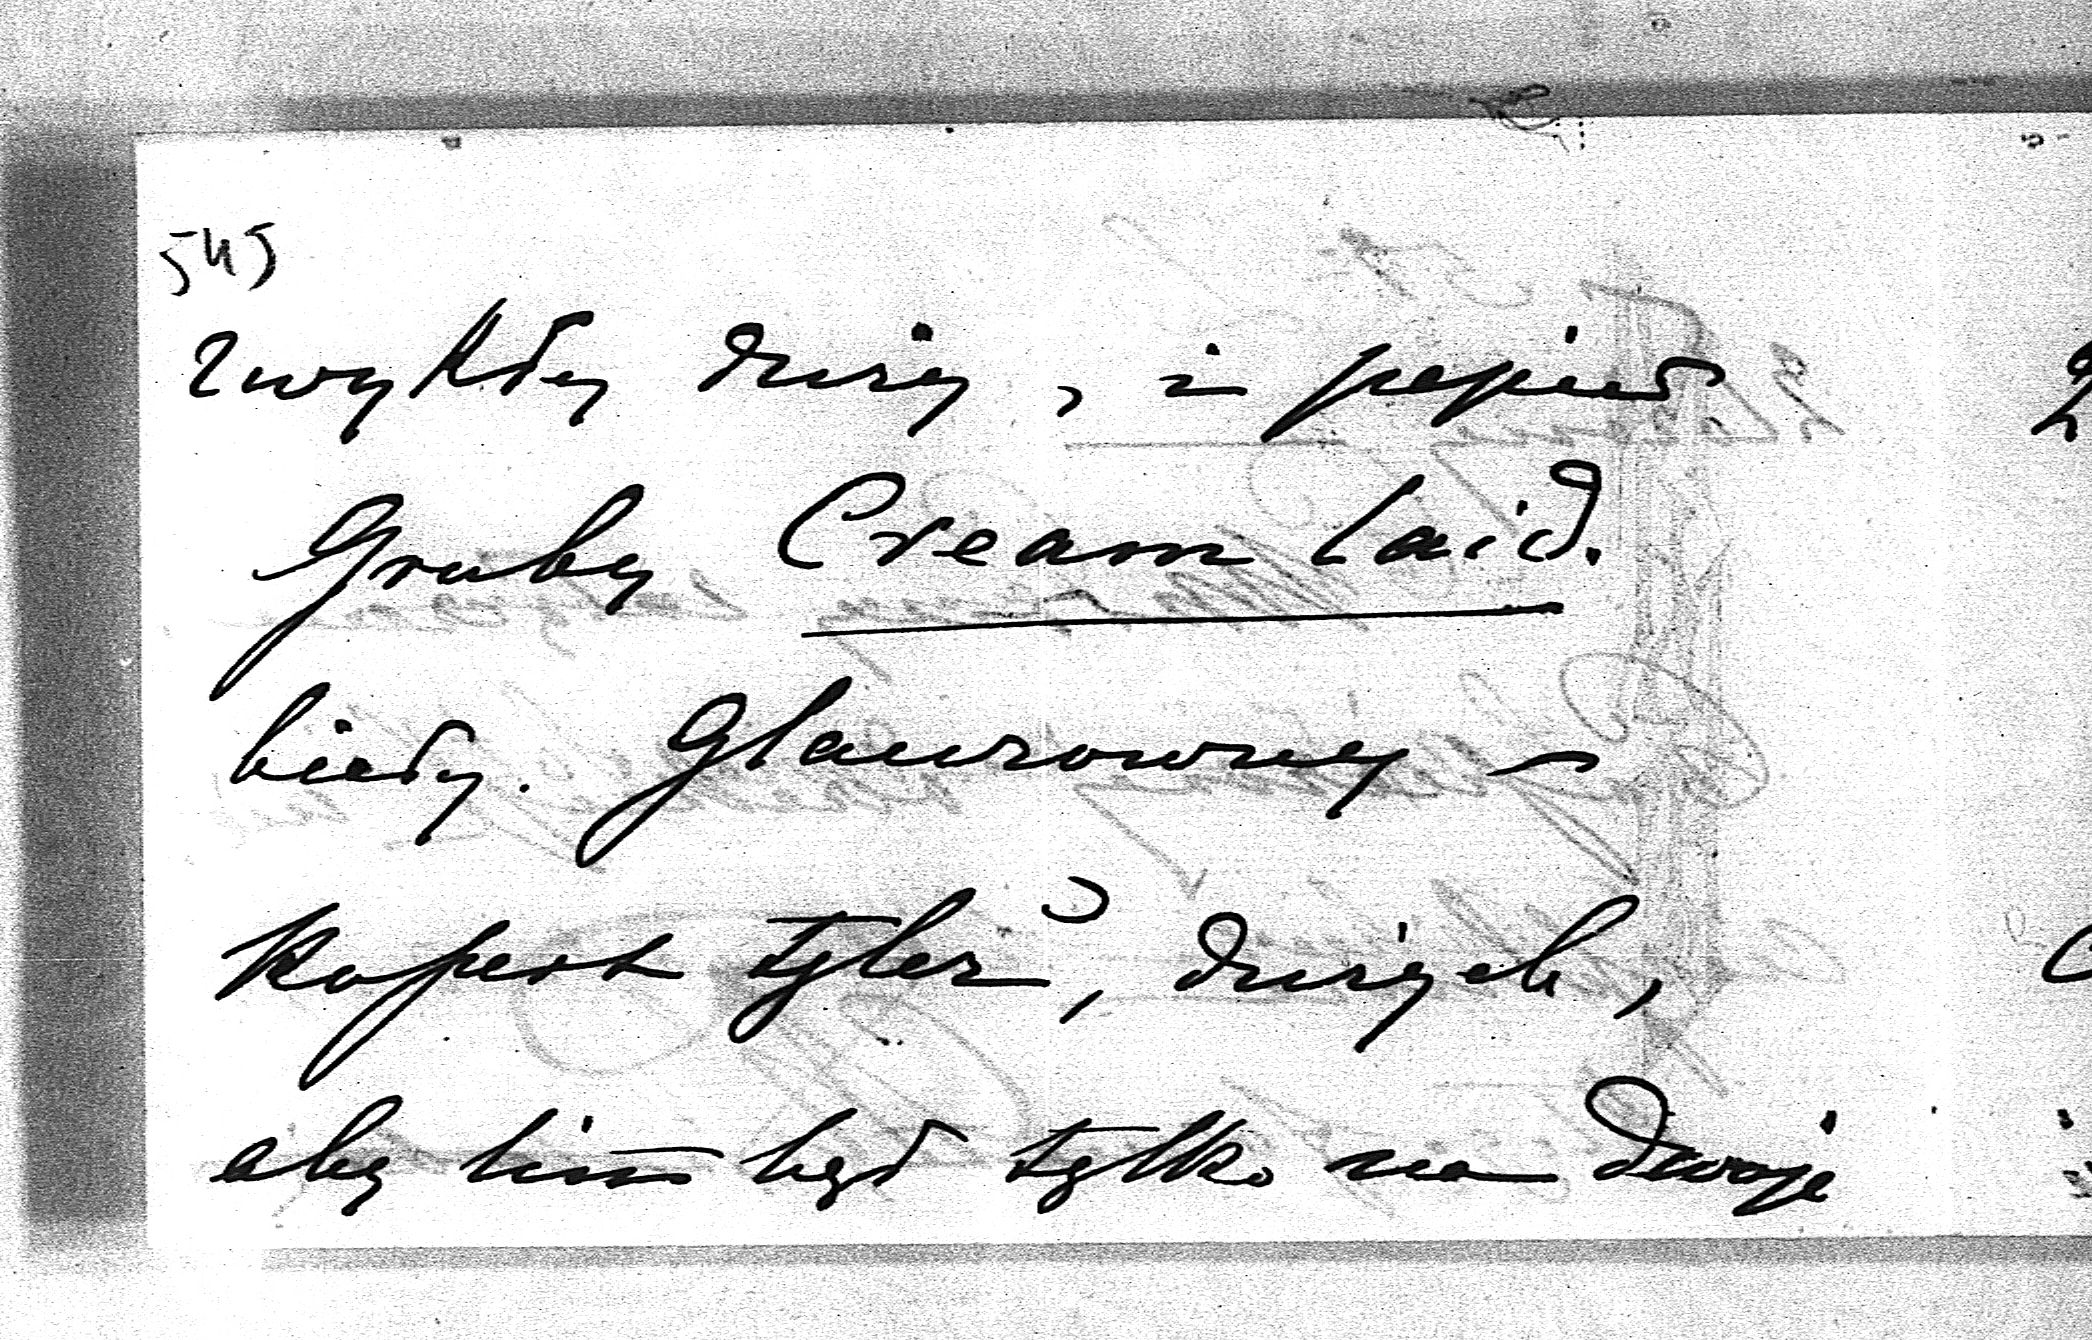 545
zwykły duży, i papier
Gruby Cream laid.
biały. Glansowny –
Kopert tyleż, dużych,
aby list był tylko na dwoje